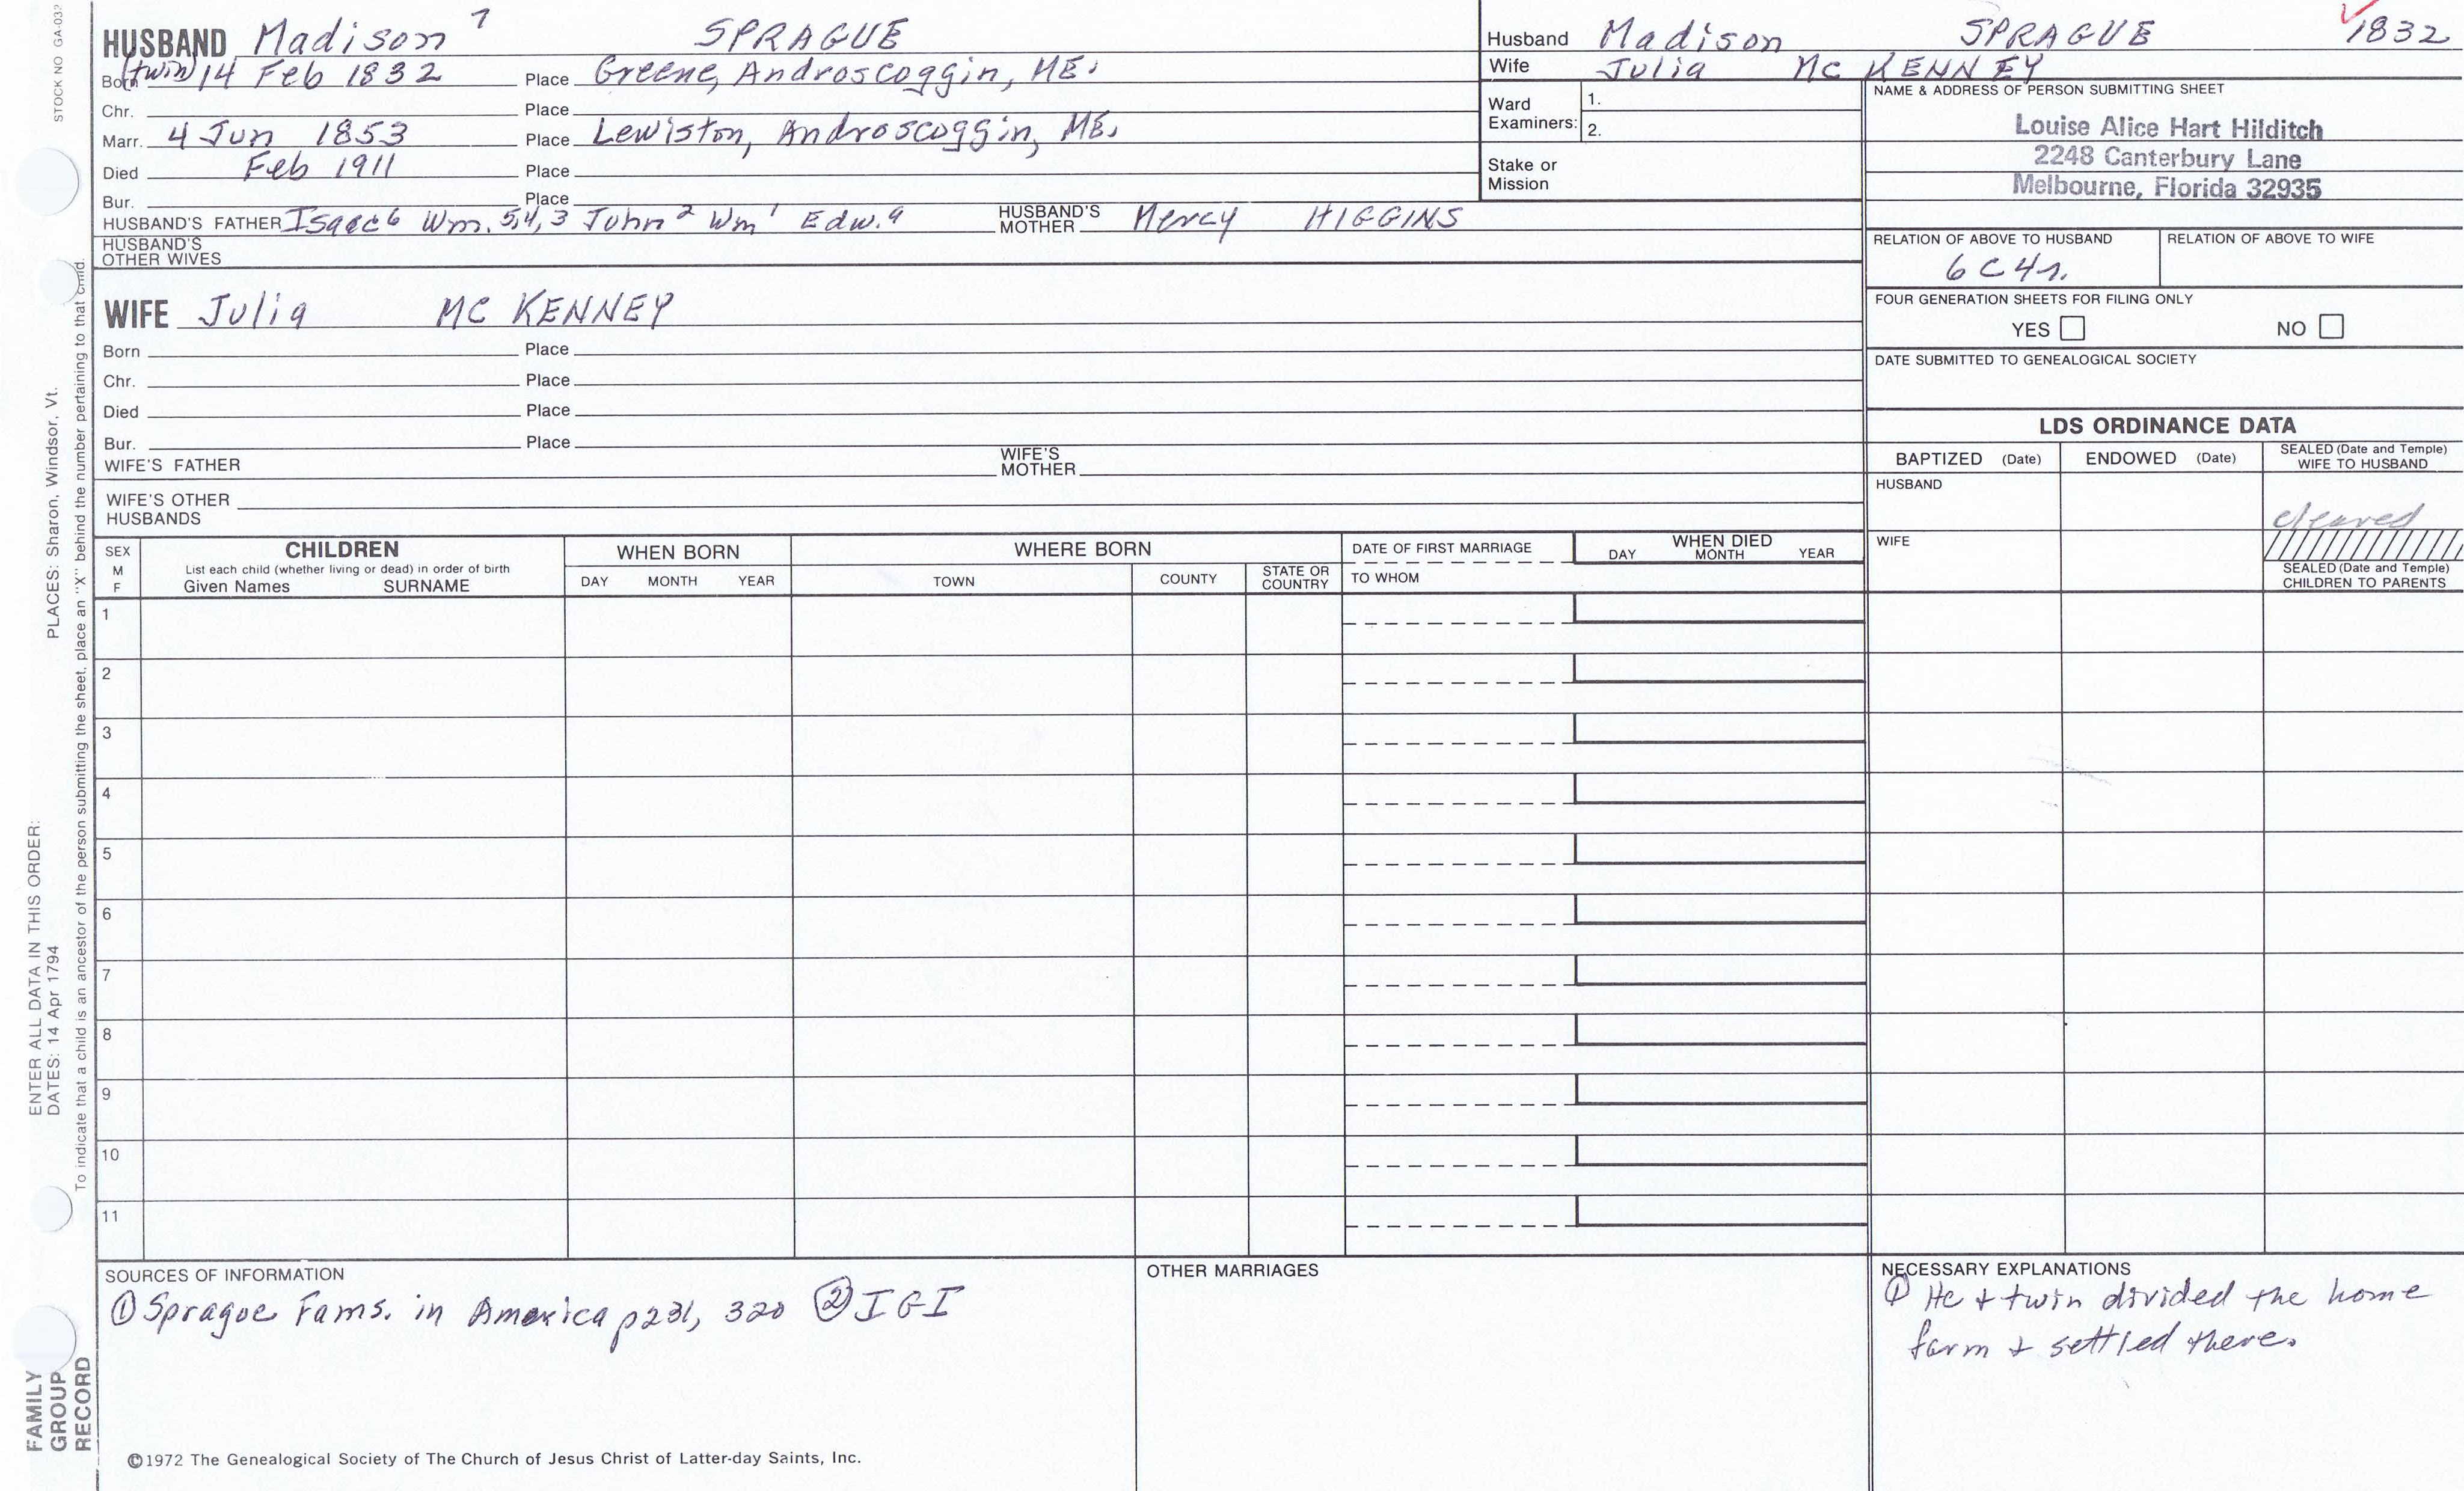 STOCK NO GA-03
HUSBAND Madison 7 SPRAGUE
Born (twin) 14 Feb 1832 Place Greene, Androscoggin, ME.
Chr. Place
Marr. 4 Jun 1853 Place Lewiston, Androscoggin, ME.
Died Feb 1911 Place
Bur. Place
HUSBAND'S FATHER Isaac 6 Wm. 5,4,3 John 2 Wm 1 Edw. a HUSBAND'S MOTHER Mercy HIGGINS
HUSBAND'S OTHER WIVES
WIFE Julia MC KENNEY
Born Place
Chr. Place
Died Place
Bur. Place
WIFE'S FATHER WIFE'S MOTHER
WIFE'S OTHER HUSBANDS
Husband Madison SPRAGUE 1832
Wife Julia Mc KENNEY
Ward Examiners: 1. 2.
Stake or Mission
NAME & ADDRESS OF PERSON SUBMITTING SHEET
Louise Alice Hart Hilditch
2248 Canterbury Lane
Melbourne, Florida 32935
RELATION OF ABOVE TO HUSBAND RELATION OF ABOVE TO WIFE
6 C 4 r.
FOUR GENERATION SHEETS FOR FILING ONLY
YES NO
DATE SUBMITTED TO GENEALOGICAL SOCIETY
LDS ORDINANCE DATA
BAPTIZED (Date) ENDOWED (Date) SEALED (Date and Temple) WIFE TO HUSBAND
HUSBAND
cleared
WIFE
SEALED (Date and Temple) CHILDREN TO PARENTS
SEX M F
CHILDREN
List each child (whether living or dead) in order of birth
Given Names SURNAME
WHEN BORN
DAY MONTH YEAR
WHERE BORN
TOWN COUNTY STATE OR COUNTRY
DATE OF FIRST MARRIAGE
TO WHOM
WHEN DIED
DAY MONTH YEAR
1
2
3
4
5
6
7
8
9
10
11
SOURCES OF INFORMATION
① Sprague Fams. in America p231, 320 ② IGI
OTHER MARRIAGES
NECESSARY EXPLANATIONS
① He + twin divided the home
farm + settled there.
©1972 The Genealogical Society of The Church of Jesus Christ of Latter-day Saints, Inc.
PLACES: Sharon, Windsor, Vt.
ENTER ALL DATA IN THIS ORDER:
DATES: 14 Apr 1794
To indicate that a child is an ancestor of the person submitting the sheet, place an "X" behind the number pertaining to that child.
FAMILY
GROUP
RECORD